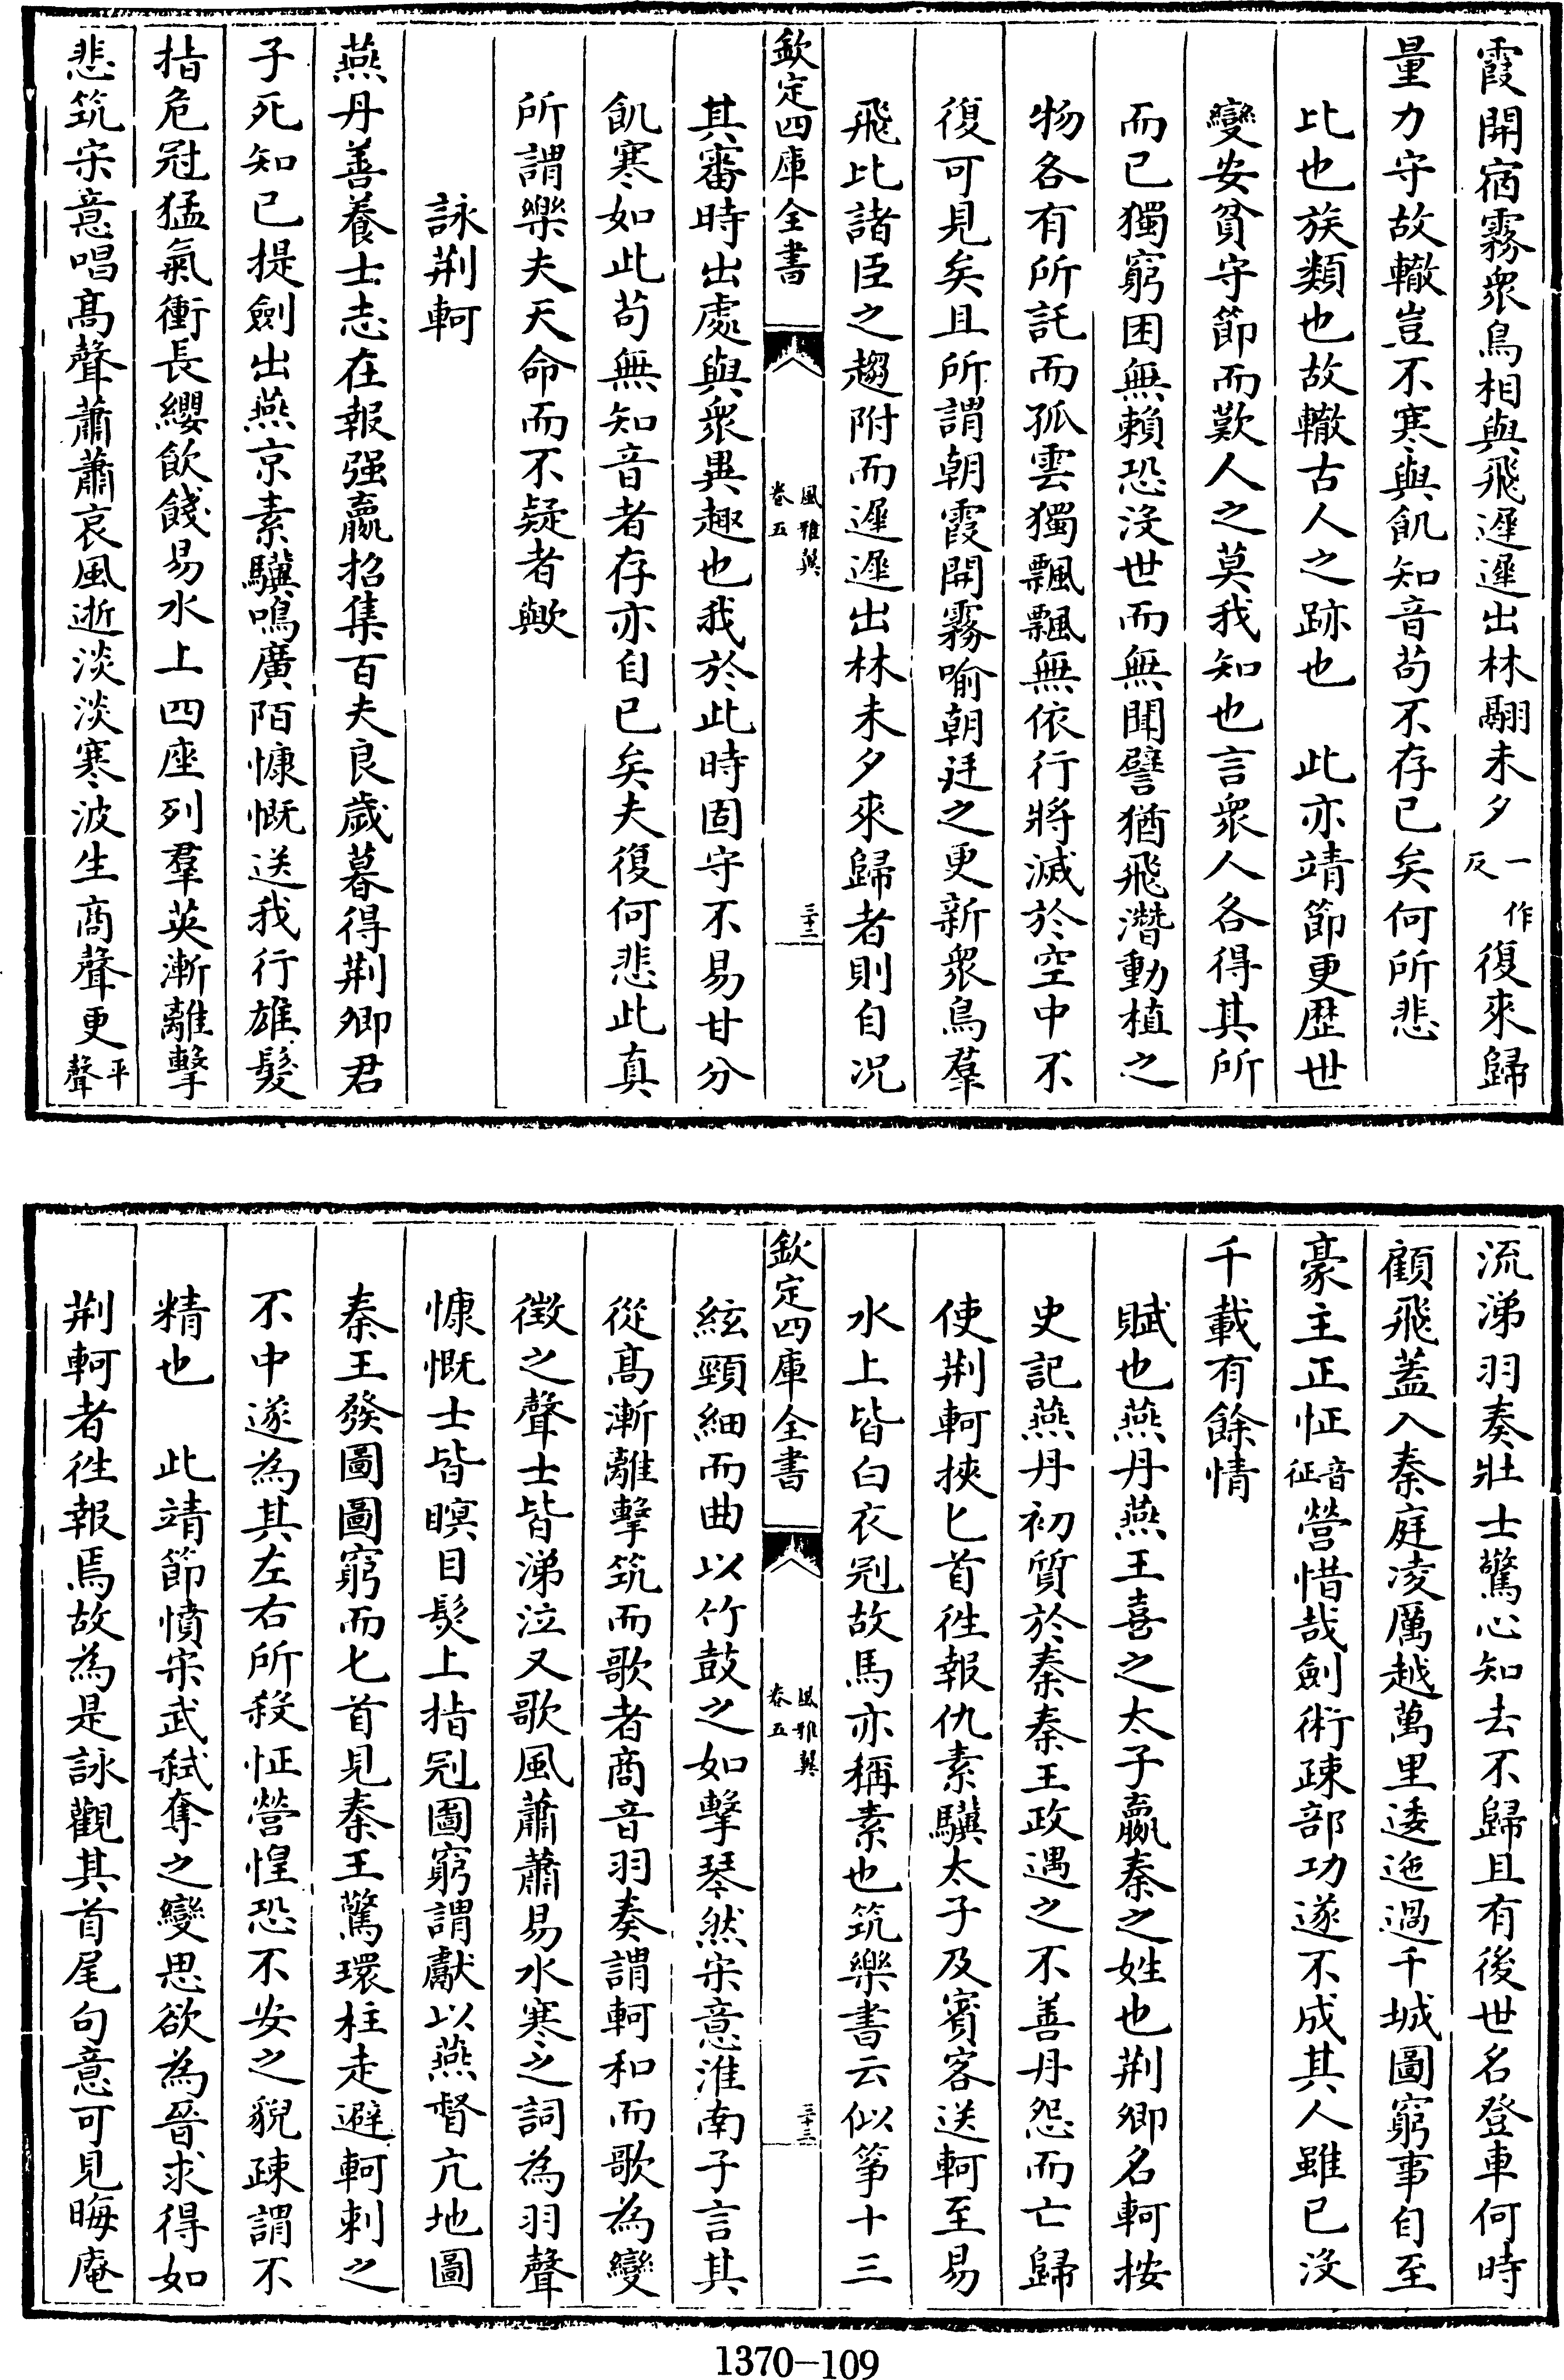 霞開宿霧衆鳥相與飛遲遲出林翮未夕一作反復來歸
量力守故轍豈不寒與飢知音苟不存已矣何所悲
比也族類也故轍古人之跡也　此亦靖節更歴世
變安貧守節而歎人之莫我知也言衆人各得其所
而已獨窮困無賴恐沒世而無聞譬猶飛潛動植之
物各有所託而孤雲獨飄飄無依行將滅於空中不
復可見矣且所謂朝霞開霧喻朝廷之更新衆鳥羣
飛比諸臣之趨附而遲遲出林未夕來歸者則自况
欽定四庫全書　風雅翼卷五　三十二
其審時出處與衆異趣也我於此時固守不易甘分
飢寒如此苟無知音者存亦自已矣夫復何悲此真
所謂樂夫天命而不疑者歟
詠荆軻
燕丹善養士志在報强嬴招集百夫良歲暮得荆卿君
子死知已提劍出燕京素驥鳴廣陌慷慨送我行雄髮
指危冠猛氣衝長纓飲餞易水上四座列羣英漸離擊
悲筑宋意唱高聲蕭蕭哀風逝淡淡寒波生商聲更平聲
流涕羽奏壯士驚心知去不歸且有後世名登車何時
顧飛蓋入秦庭凌厲越萬里逶迤過千城圖窮事自至
豪主正怔音征營惜哉劍術疎部功遂不成其人雖已沒
千載有餘情
賦也燕丹燕王喜之太子嬴秦之姓也荆卿名軻按
史記燕丹初質於秦秦王政遇之不善丹怨而亡歸
使荆軻挾匕首徃報仇素驥太子及賓客送軻至易
水上皆白衣冠故馬亦稱素也筑樂書云似箏十三
欽定四庫全書　風雅翼卷五　三十三
絃頸細而曲以竹鼓之如擊琴然宋意淮南子言其
從高漸離擊筑而歌者商音羽奏謂軻和而歌為變
徴之聲士皆涕泣又歌風蕭蕭易水寒之詞為羽聲
慷慨士皆瞋目髮上指冠圖窮謂獻以燕督亢地圖
秦王發圖圖窮而匕首見秦王驚環柱走避軻刺之
不中遂為其左右所殺怔營惶恐不安之貌疎謂不
精也　此靖節憤宋武弒奪之變思欲為晉求得如
荆軻者徃報焉故為是詠觀其首尾句意可見晦庵
1370—109